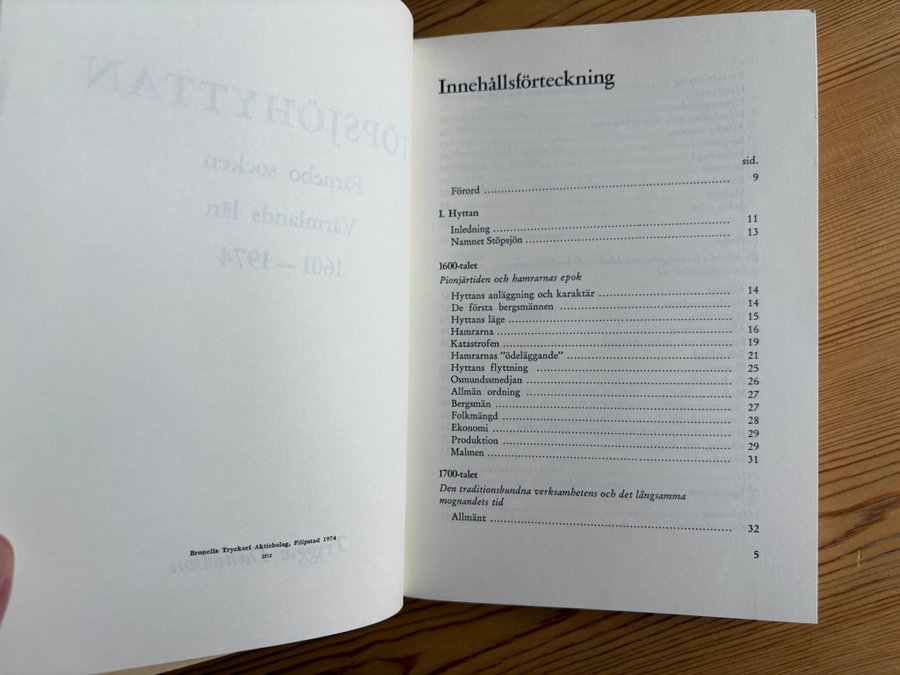 STÖPSJÖHYTTAN
Färnebo socken
Värmlands län
1601 — 1974
Bronells Tryckeri Aktiebolag, Filipstad 1974
Innehållsförteckning
sid.
Förord 9
I. Hyttan
Inledning 11
Namnet Stöpsjön 13
1600-talet
Pionjärtiden och hamrarnas epok
Hyttans anläggning och karaktär 14
De första bergsmännen 14
Hyttans läge 15
Hamrarna 16
Katastrofen 19
Hamrarnas ”ödeläggande” 21
Hyttans flyttning 25
Osmundssmedjan 26
Allmän ordning 27
Bergsmän 27
Folkmängd 28
Ekonomi 29
Produktion 29
Malmen 31
1700-talet
Den traditionsbundna verksamhetens och det långsamma
mognandets tid
Allmänt 32
5